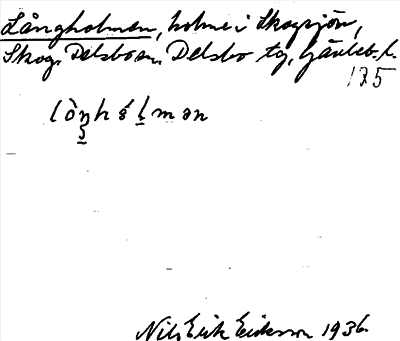 Långholmen, holme i Skogsjön,
Skog, Delsbo sn, Delsbo tg, Gävleb. l.
175
Nils Erik Eriksson 1936